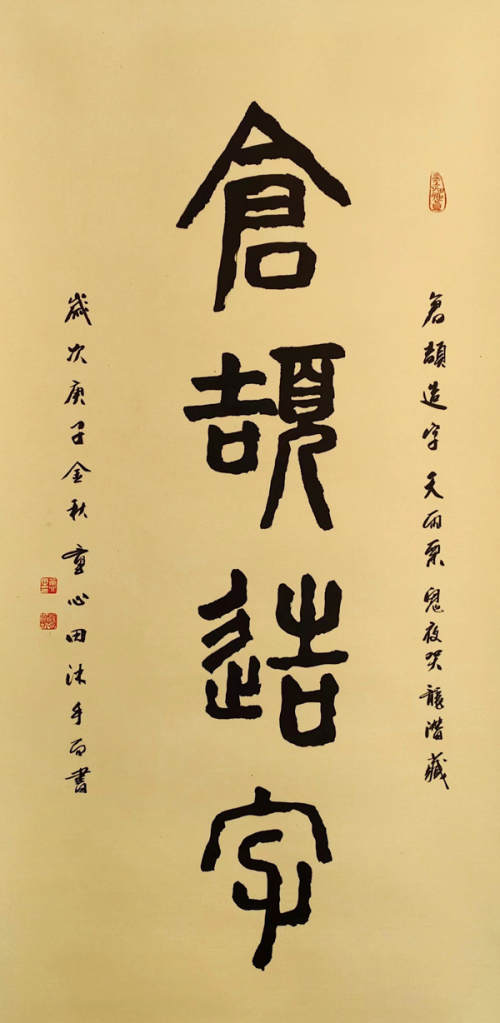 倉頡造字 天雨粟 鬼夜哭 龍潛藏
倉頡造字
歲次庚子金秋 童心田沐手而書